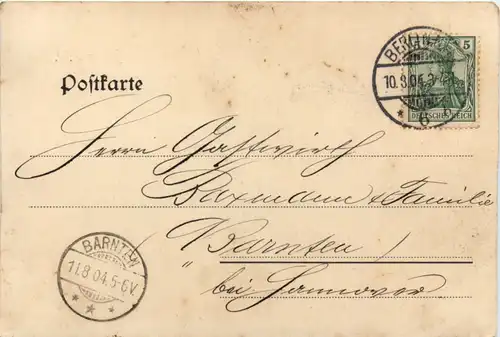 Postkarte
BERLIN
10.8.04.3-4
5
DEUTSCHES REICH
Herrn Gastwirth
Baxmann & Familie
Barnten
bei Hannover
BARNTEN
11.8.04.5-6V.